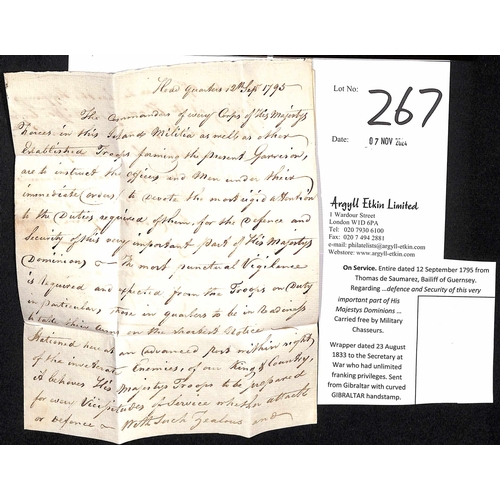 Head Quarters 12th Sep 1795
The Commandars of every Corps of His Majestys
Forces in this Island Militia as well as other
Established Troops forming the present Garrison,
are to instruct the officers and Men under their
immediate orders, to devote the most rigid attention
to the Duties required of them, for the Defence and
Security of this very important part of His Majestys
Dominions The most punctual Vigilance
is required and expected from the Troops on Duty
in particular, those in quarters to be in Readiness
to take their arms on the shortest Notice
Stationed here as an advanced post within sight
of the inveterate Enemies, of our King & Country,
it behoves His Majestys Troops to be prepared
for every Vicissitudes of Service whether attack
or defence With such Zealous and
Lot No:
267
Date: 07 NOV 2024
Argyll Etkin Limited
1 Wardour Street
London W1D 6PA
Tel: 020 7930 6100
Fax: 020 7494 2881
e-mail: philatelists@argyll-etkin.com
Webstore: www.argyll-etkin.com
On Service. Entire dated 12 September 1795 from
Thomas de Saumarez, Bailiff of Guernsey.
Regarding ...defence and Security of this very
important part of His
Majestys Dominions ...
Carried free by Military
Chasseurs.
Wrapper dated 23 August
1833 to the Secretary at
War who had unlimited
franking privileges. Sent
from Gibraltar with curved
GIBRALTAR handstamp.